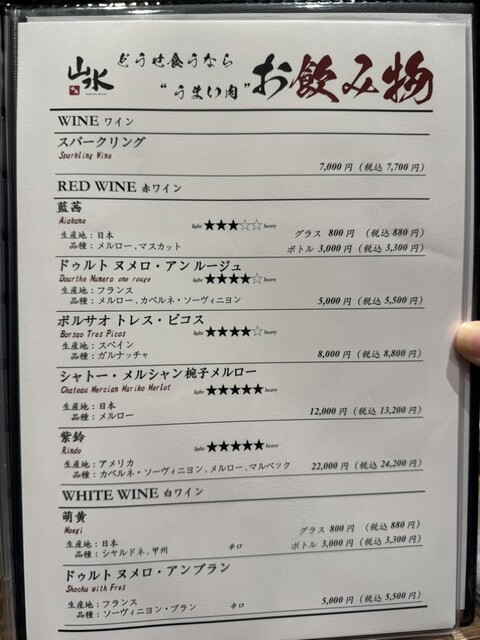 山水
どうせ食うなら
"うまい肉"
お飲み物
WINE ワイン
スパークリング
Sparkling Wine
7,000 円 (税込 7,700 円)
RED WINE 赤ワイン
藍茜
Aiakane
light ★★★☆☆ heavy
グラス 800 円 (税込 880 円)
生産地:日本
品種:メルロー、マスカット
ボトル 3,000 円 (税込 3,300 円)
ドゥルト ヌメロ・アン ルージュ
Dourthe Numero one rouge
light ★★★★☆ heavy
生産地:フランス
品種:メルロー、カベルネ・ソーヴィニヨン
5,000 円 (税込 5,500 円)
ボルサオ トレス・ピコス
Borzao Tres Picos
light ★★★★☆ heavy
生産地:スペイン
品種:ガルナッチャ
8,000 円 (税込 8,800 円)
シャトー・メルシャン 椀子メルロー
Chateau Mercian Mariko Merlot
light ★★★★★ heavy
生産地:日本
品種:メルロー
12,000 円 (税込 13,200 円)
紫鈴
Rindo
light ★★★★★ heavy
生産地:アメリカ
品種:カベルネ・ソーヴィニヨン、メルロー、マルベック
22,000 円 (税込 24,200 円)
WHITE WINE 白ワイン
萌黄
Moegi
グラス 800 円 (税込 880 円)
生産地:日本
品種:シャルドネ、甲州
辛口
ボトル 3,000 円 (税込 3,300 円)
ドゥルト ヌメロ・アンブラン
Shochu with Fres
生産地:フランス
品種:ソーヴィニヨン・ブラン
辛口
5,000 円 (税込 5,500 円)